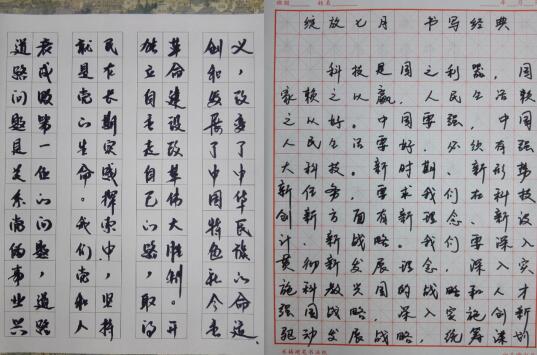 道路问题是关系党的事业兴
衰成败第一位的问题，道路
就是党的生命。我们党和人
民在长期实践探索中，坚持
独立自主走自己的路，取得
革命建设改革伟大胜利。开
创和发展了中国特色社会主
义，改变了中华民族的命运
绽放七月 书写经典
科技是国之利器，国
家赖之以赢，人民生活赖
之以好。中国要强，中国
人民生活要好，必须有强
大科技。新时期、新形势
新任务，要求我们在科技
创新方面有新理念、新设
计、新战略。我们要深入
贯彻新发展理念，深入实
施科教兴国的战略和人才
强国战略，深入实施创新
驱动发展战略，统筹谋划